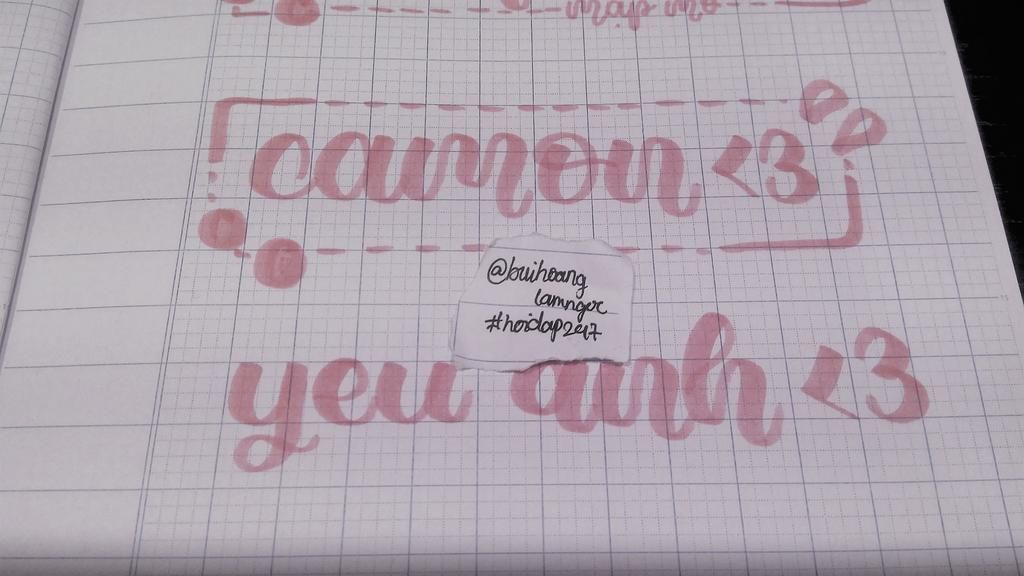 map mo
camon <3
@buihoang
lamngoc
#hoidap247
yeu anh <3